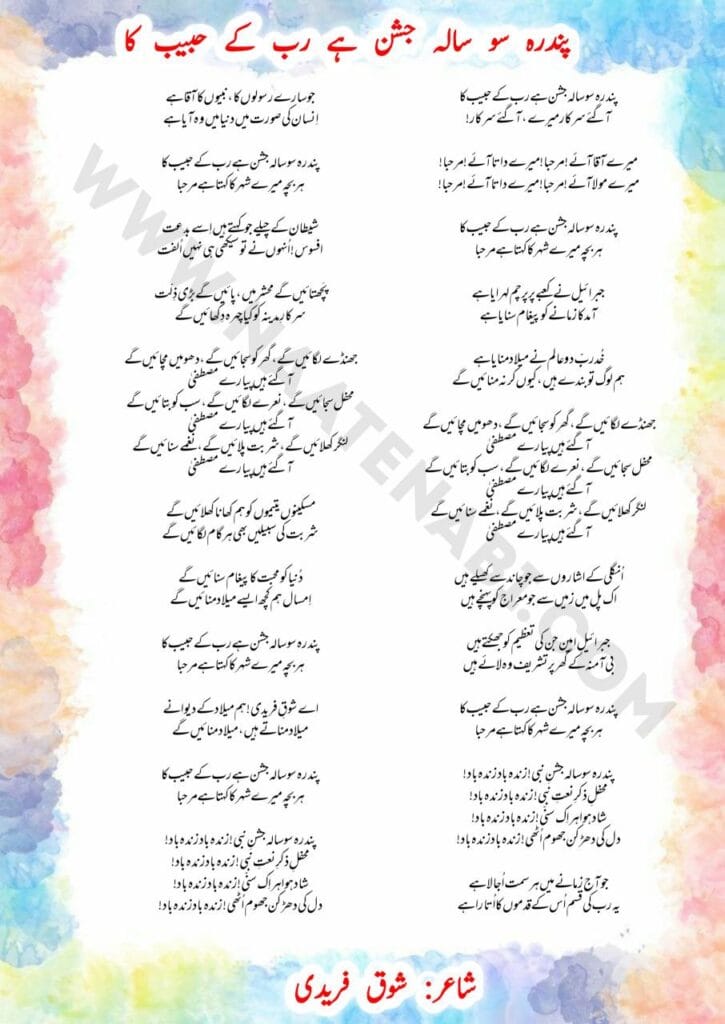 پندرہ سو سالہ جشن ہے رب کے حبیب کا
پندرہ سو سالہ جشن ہے رب کے حبیب کا
آگئے سرکار میرے، آگئے سرکار!
میرے آقا آئے!مرحبا!میرے داتا آئے!مرحبا!
میرے مولا آئے!مرحبا!میرے داتا آئے!مرحبا!
پندرہ سو سالہ جشن ہے رب کے حبیب کا
ہر بچہ میرے شہر کا کہتا ہے مرحبا
جبرائیل نے کعبے پر پرچم لہرایا ہے
آمد کا زمانے کو پیغام سنایا ہے
خُدربّ دو عالم نے میلاد منایا ہے
ہم لوگ تو بندے ہیں، کیوں کر نہ منائیں گے
جھنڈے لگائیں گے، گھر کو سجائیں گے، دھومیں مچائیں گے
آگئے ہیں پیارے مصطفیٰ
محفل سجائیں گے، نعرے لگائیں گے، سب کو بتائیں گے
آگئے ہیں پیارے مصطفیٰ
لنگر کھلائیں گے، شربت پلائیں گے، نغمے سنائیں گے
آگئے ہیں پیارے مصطفیٰ
اُنگلی کے اشاروں سے جو چاند سے کھیلے ہیں
اک پل میں زمیں سے جو معراج کو پہنچے ہیں
جبرائیل امین جن کی تعظیم کو جھکتے ہیں
بی آمنہ کے گھر پر تشریف وہ لائے ہیں
پندرہ سو سالہ جشن ہے رب کے حبیب کا
ہر بچہ میرے شہر کا کہتا ہے مرحبا
پندرہ سو سالہ جشنِ نبی!زندہ باد زندہ باد!
محفلِ ذکرِ نعتِ نبی!زندہ باد زندہ باد!
شاد ہوا ہر اک سنّی!زندہ باد زندہ باد!
دل کی دھڑکن جھوم اُٹھی!زندہ باد زندہ باد!
جو آج زمانے میں ہر سمت اُجالا ہے
یہ رب کی قسم اُس کے قدموں کا اُتارا ہے
جو سارے رسولوں کا، نبیوں کا آقا ہے
اِنسان کی صورت میں دنیا میں وہ آیا ہے
پندرہ سو سالہ جشن ہے رب کے حبیب کا
ہر بچہ میرے شہر کا کہتا ہے مرحبا
شیطان کے چیلے جو کہتے ہیں اسے بدعت
افسوس!اُنہوں نے تو سیکھی ہی نہیں اُلفت
پچھتائیں گے محشر میں، پائیں گے بڑی ذلت
سرکارِ مدینہ کو کیا چہرہ دکھائیں گے
جھنڈے لگائیں گے، گھر کو سجائیں گے، دھومیں مچائیں گے
آگئے ہیں پیارے مصطفیٰ
محفل سجائیں گے، نعرے لگائیں گے، سب کو بتائیں گے
آگئے ہیں پیارے مصطفیٰ
لنگر کھلائیں گے، شربت پلائیں گے، نغمے سنائیں گے
آگئے ہیں پیارے مصطفیٰ
مسکینوں یتیموں کو ہم کھانا کھلائیں گے
شربت کی سبیلیں بھی ہر گام لگائیں گے
دُنیا کو محبت کا پیغام سنائیں گے
اِمسال ہم کچھ ایسے میلاد منائیں گے
پندرہ سو سالہ جشن ہے رب کے حبیب کا
ہر بچہ میرے شہر کا کہتا ہے مرحبا
اے شوقِ فریدی!ہم میلاد کے دیوانے
میلاد مناتے ہیں، میلاد منائیں گے
پندرہ سو سالہ جشن ہے رب کے حبیب کا
ہر بچہ میرے شہر کا کہتا ہے مرحبا
پندرہ سو سالہ جشنِ نبی!زندہ باد زندہ باد!
محفلِ ذکرِ نعتِ نبی!زندہ باد زندہ باد!
شاد ہوا ہر اک سنّی!زندہ باد زندہ باد!
دل کی دھڑکن جھوم اُٹھی!زندہ باد زندہ باد!
شاعر: شوق فریدی
WWW.NAATENART.COM